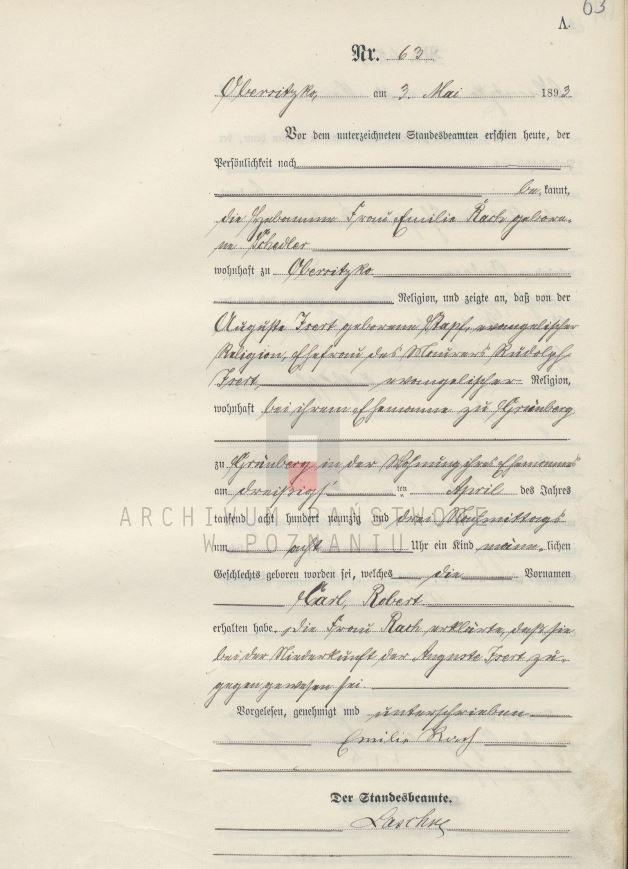 63
A.
Nr. 63
Obersitzko, am 3. Mai 1893
Vor dem unterzeichneten Standesbeamten erschien heute, der
Persönlichkeit nach
be kannt,
die Hebamme Frau Emilie Rach gebore-
ne Schedler
wohnhaft zu Obersitzko
Religion, und zeigte an, daß von der
Auguste Isert geborene evangelischer
Religion, Ehefrau des Maurers Rudolph
Isert, evangelischer Religion,
wohnhaft bei ihrem Ehemanne zu Grünberg
zu Grünberg in der Wohnung ihres Ehemannes
am dreißigsten April des Jahres
tausend acht hundert neunzig und drei Nachmittags
um acht Uhr ein Kind männ-lichen
Geschlechts geboren worden sei, welches die Vornamen
Carl, Robert
erhalten habe. Die Frau Rach erklärte, daß sie
bei der Niederkunft der Auguste Isert zu-
gegen gewesen sei.
Vorgelesen, genehmigt und unterschrieben
Emilie Rach
Der Standesbeamte.
ARCHIWUM PAŃSTWOWE
W POZNANIU